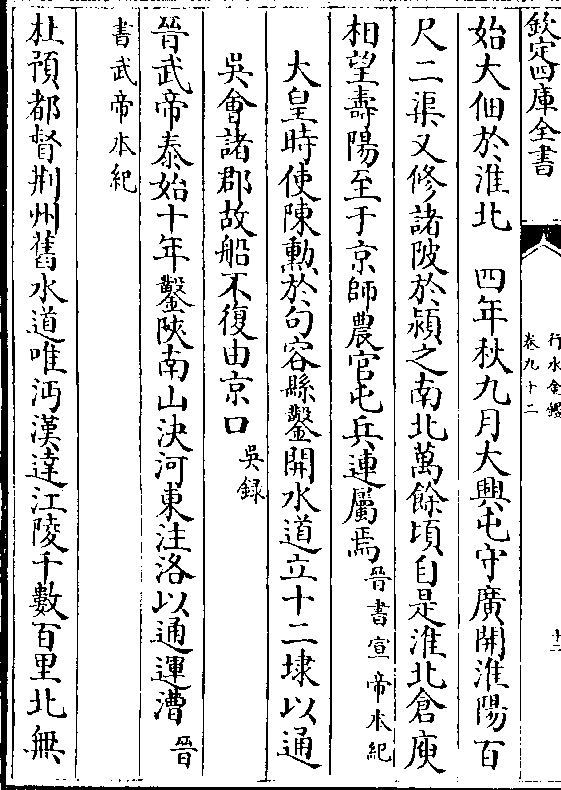 欽定四庫全書
行水金鑑
卷九十二
十二
始大佃於淮北　四年秋九月大興屯守廣開淮陽百
尺二渠又修諸陂於潁之南北萬餘頃自是淮北倉庾
相望壽陽至于京師農官屯兵連屬焉晉書宣帝本紀
大皇時使陳勳於句容縣鑿開水道立十二埭以通
吳會諸郡故船不復由京口吳録
晉武帝泰始十年鑿陜南山決河東注洛以通運漕晉
書武帝本紀
杜預都督荆州舊水道唯沔漢達江陵千數百里北無